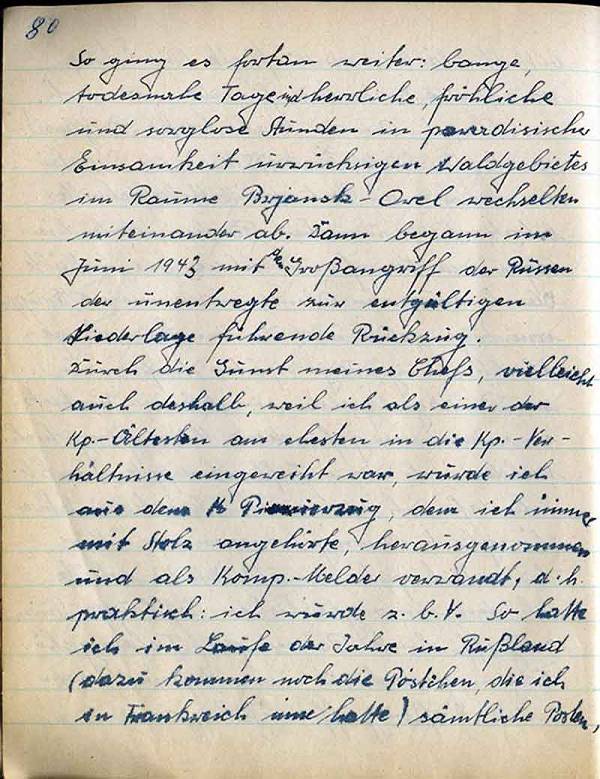 80
So ging es fortan weiter: bange,
todesnahe Tage und herrliche, fröhliche
und sorglose Stunden in paradisischer
Einsamkeit urwüchsigen Waldgebietes
im Raume Brjansk-Orel wechselten
miteinander ab. Dann begann im
Juni 1943 mit dem Großangriff der Russen
der unentwegte zur entgültigen
Niederlage führende Rückzug.
Durch die Gunst meines Chefs, vielleicht
auch deshalb, weil ich als einer der
Kp.-Ältesten am ehesten in die Kp.-Ver-
hältnisse eingeweiht war, wurde ich
aus dem Pionierzug, dem ich immer
mit Stolz angehörte, herausgenommen
und als Komp.-Melder verwandt, d.h.
praktisch: ich wurde z.b.V. So hatte
ich im Laufe der Jahre in Rußland
(dazu kommen noch die Pöstchen, die ich
in Frankreich inne hatte) sämtliche Posten,